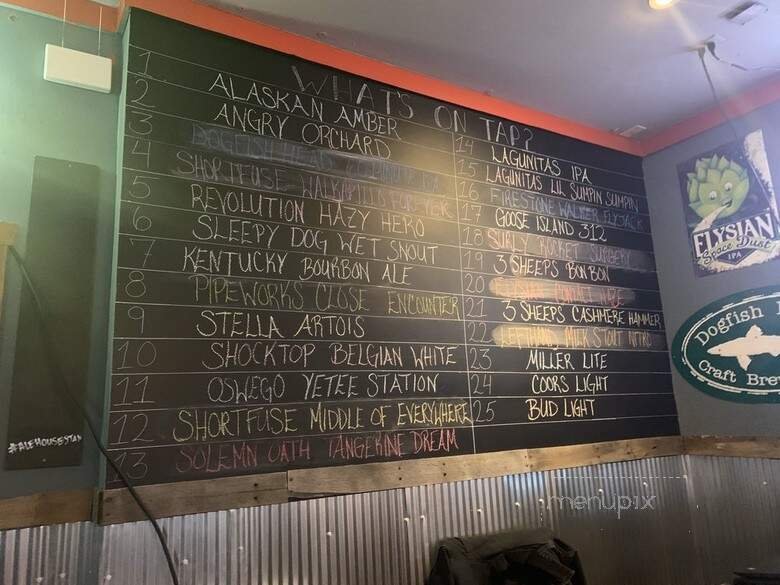 WHAT'S ON TAP?
1 ALASKAN AMBER
2 ANGRY ORCHARD
3 DOGFISH HEAD
4 SHORTFUSE
5 REVOLUTION HAZY HERO
6 SLEEPY DOG WET SNOUT
7 KENTUCKY BOURBON ALE
8 PIPEWORKS CLOSE ENCOUNTER
9 STELLA ARTOIS
10 SHOCKTOP BELGIAN WHITE
11 OSWEGO YETEE STATION
12 SHORTFUSE MIDDLE OF EVERYWHERE
13 SOLEMN OATH TANGERINE DREAM
14 LAGUNITAS IPA
15 LAGUNITAS LIL SUMPIN SUMPIN
16 FIRESTONE WALKER FLYJACK
17 GOOSE ISLAND 312
18 SURLY ROCKET SURGERY
19 3 SHEEPS BON BON
20
21 3 SHEEPS CASHMERE HAMMER
22 LEFTHAND MILK STOUT NITRO
23 MILLER LITE
24 COORS LIGHT
25 BUD LIGHT
#ALEHOUSESTAD
ELYSIAN
Space Dust
IPA
Dogfish
Craft Brew
menupix